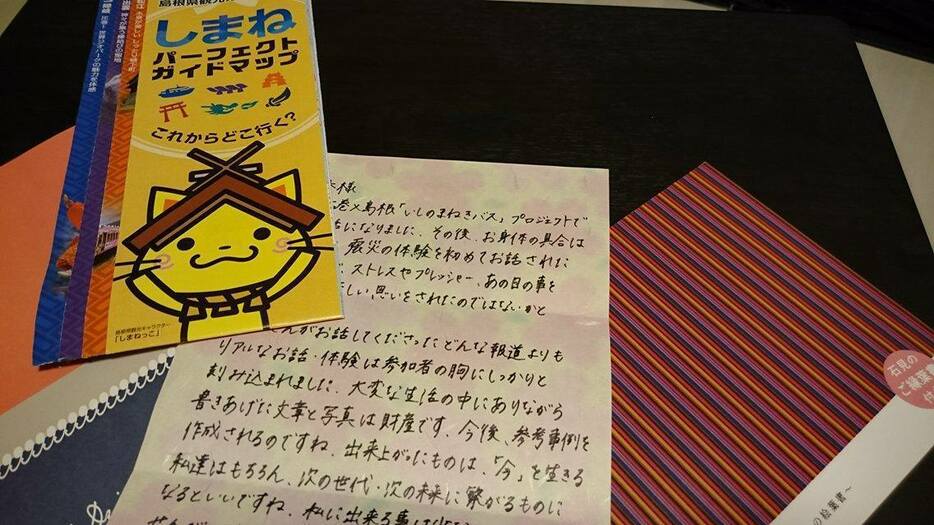 島根県観光
しまね
パーフェクト
ガイドマップ
これからどこ行く?
島根県観光キャラクター
「しまねっこ」
様
巻×島根「いしのまねきバス」プロジェクトで
話になりました。その後、お身体の具合は
震災の体験を初めてお話された
ストレスやプレッシャー、あの日の事を
しい思いをされたのではないかと
さんがお話してくださったどんな報道よりも
リアルなお話・体験は参加者の胸にしっかりと
刻み込まれました。大変な生活の中にありながら
書きあげた文章と写真は財産です。今後、参考事例を
作成されるのですね。出来上がったものは、「今」を生きる
私達はもちろん、次の世代・次の未来に繋がるものに
なるといいですね。私に出来る事は
石見の
ご縁葉書
付
の絵葉書〜